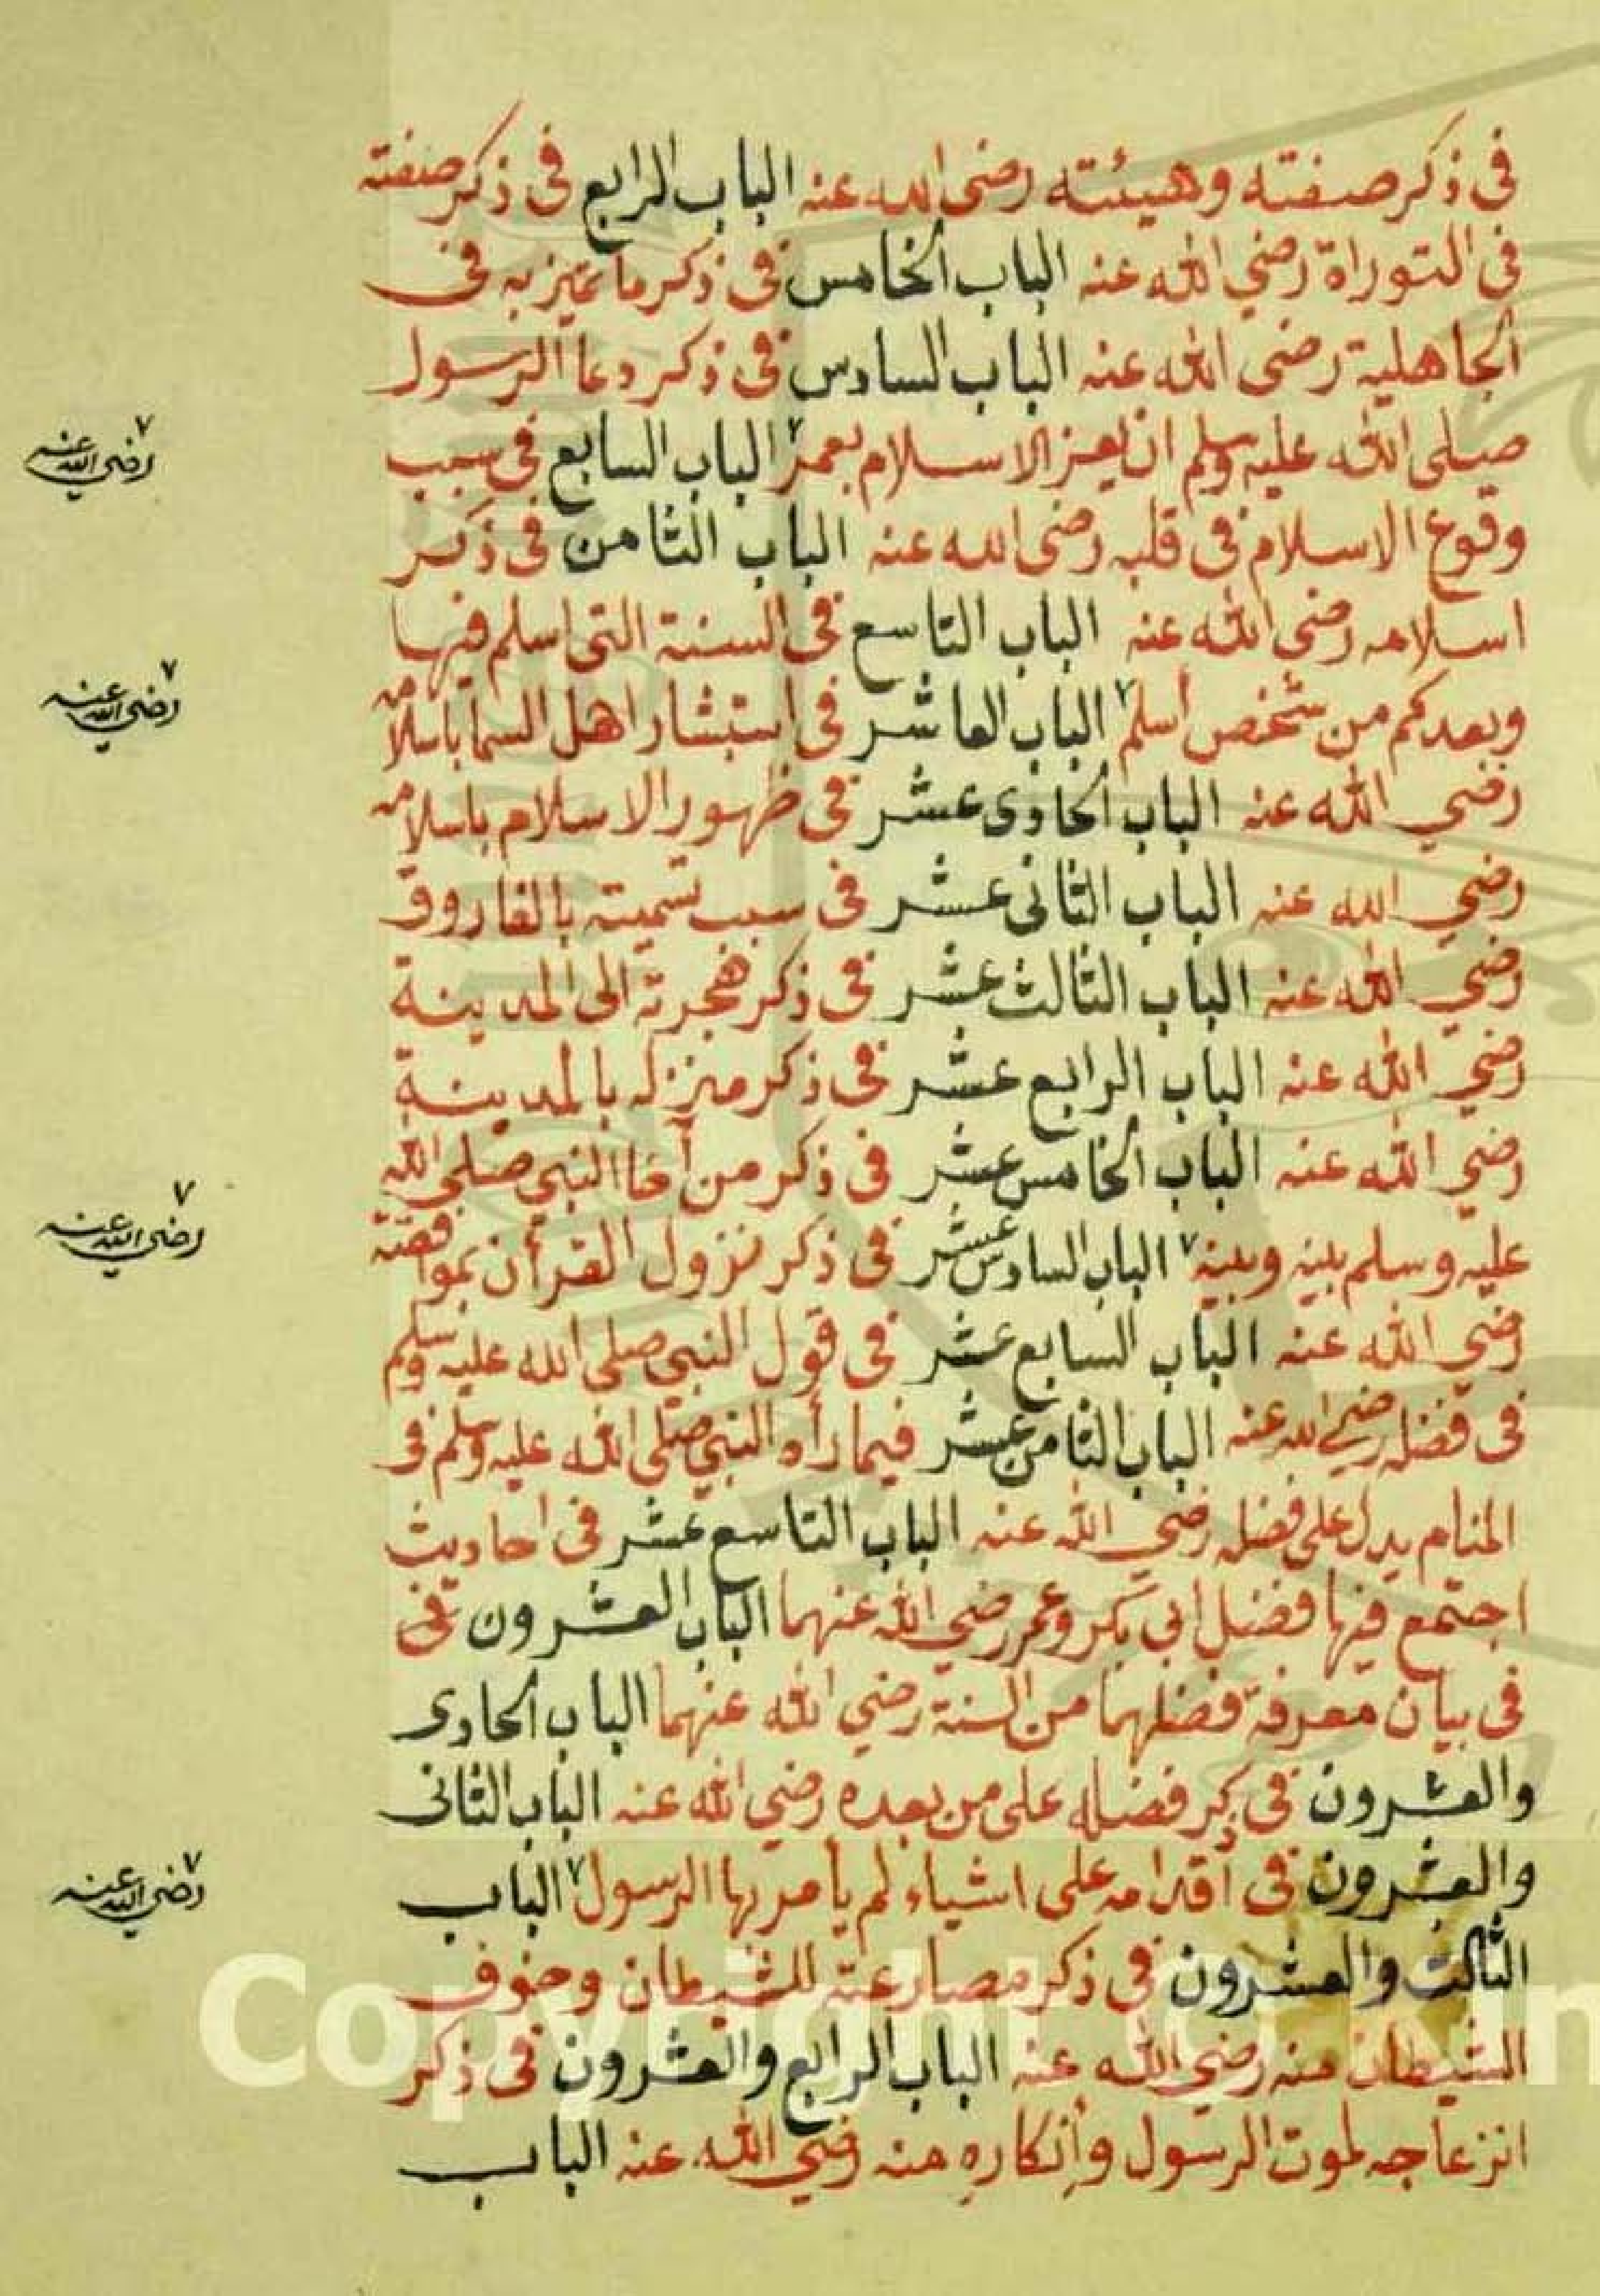 في ذكر صفته وهيئته رضي الله عنه الباب الرابع في ذكر صفته
في التوراة رضي الله عنه الباب الخامس في ذكر ما تميز به في
الجاهلية رضي الله عنه الباب السادس في ذكر دعا الرسول
صلى الله عليه وسلم ان يعز الاسلام بعمر٧ الباب السابع في سبب
٧ رضي الله عنه
وقوع الاسلام في قلبه رضي الله عنه الباب الثامن في ذكر
اسلامه رضي الله عنه الباب التاسع في السنة التي اسلم فيها
وبعدكم من شخص أسلم٧ الباب العاشر في استبشار اهل السما باسلامه
٧ رضي الله عنه
رضي الله عنه الباب الحادى عشر في ظهور الاسلام باسلامه
رضي الله عنه الباب الثانى عشر في سبب تسميته بالفاروق
رضي الله عنه الباب الثالث عشر في ذكر هجرته الى المدينة
رضي الله عنه الباب الرابع عشر في ذكر منزله بالمدينة
رضي الله عنه الباب الخامس عشر في ذكر من آخا النبي صلى الله
عليه وسلم بينه وبينه٧ الباب السادس عشر في ذكر نزول القرأن بموافقته
٧ رضي الله عنه
رضي الله عنه الباب السابع عشر في قول النبي صلى الله عليه وسلم
في فضله رضي الله عنه الباب الثامن عشر فيما رأه النبي صلى الله عليه وسلم في
المنام يدل على فضله رضي الله عنه الباب التاسع عشر في احاديث
اجتمع فيها فضل ابى بكر وعمر رضي الله عنهما الباب العشرون في
في بيان معرفة فضلهما من السنة رضي الله عنهما الباب الحادى
والعشرون في ذكر فضله على من بعده رضي الله عنه الباب الثانى
والعشرون في أقدامه على اشياء لم يأمر بها الرسول٧ الباب
٧ رضي الله عنه
الثالث والعشرون في ذكر مصارعته للشيطان وخوف
الشيطان منه رضي الله عنه الباب الرابع والعشرون في ذكر
انزعاجه لموت الرسول وأنكاره منه رضي الله عنه الباب
Copyright © Kin